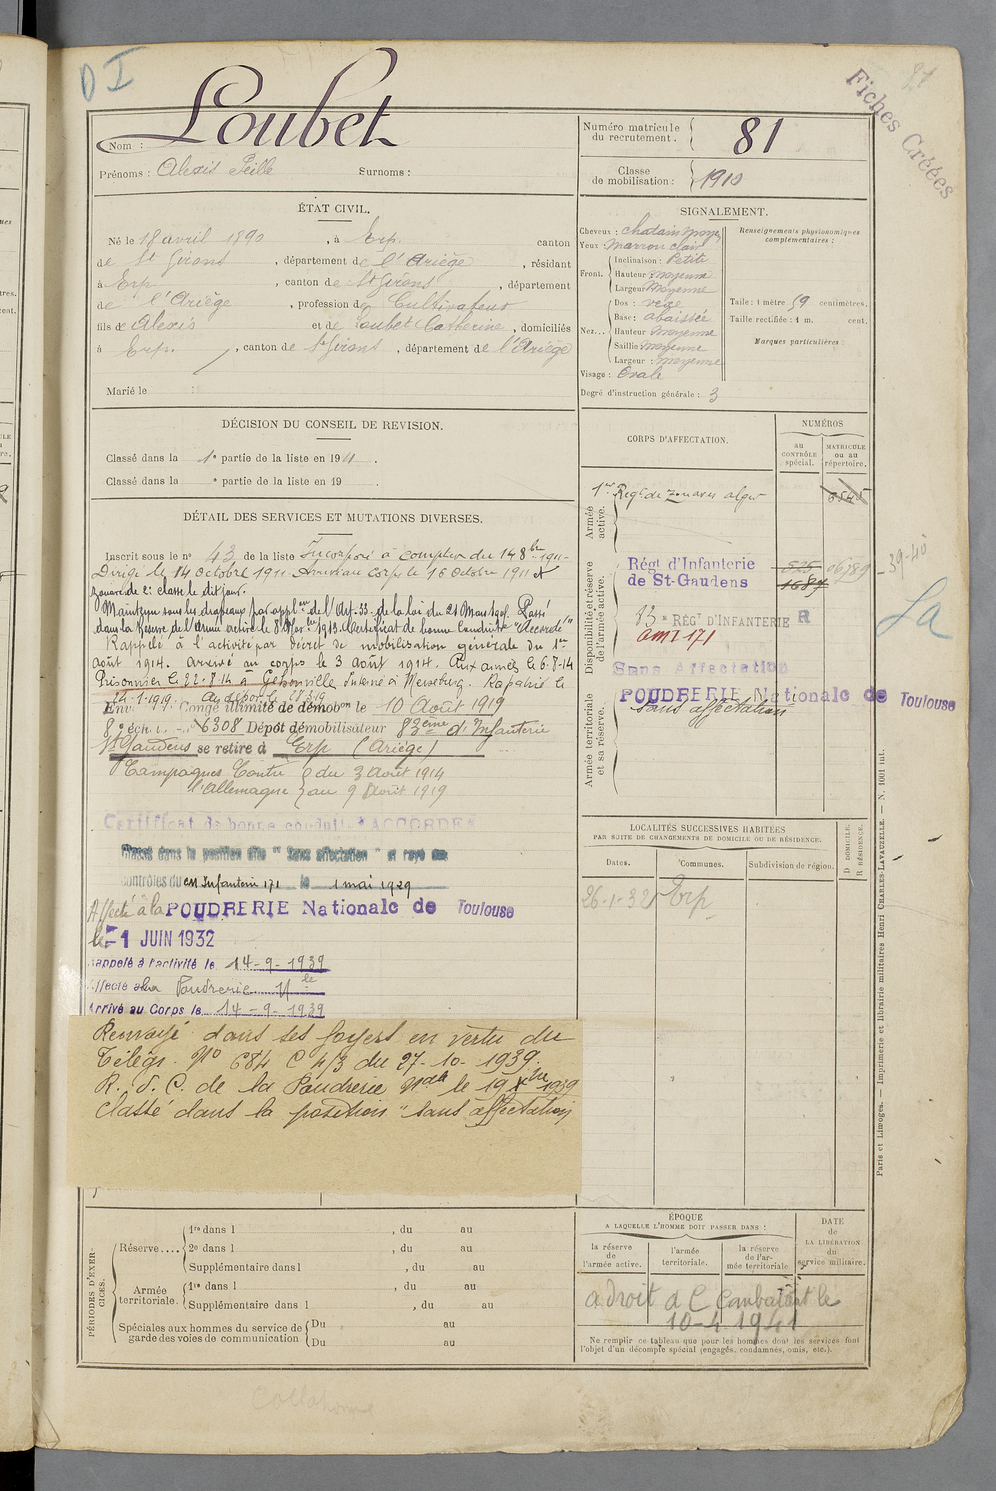 D I
81
Fiches Créées
Nom : Loubet
Prénoms : Alexis Peille Surnoms :
Numéro matricule du recrutement : 81
Classe de mobilisation : 1910
ÉTAT CIVIL.
Né le 18 avril 1890, à Erp. canton
de St Girons, département de l'Ariège, résidant
à Erp, canton de St Girons, département
de l'Ariège, profession de Cultivateur
fils de Alexis et de Loubet Catherine, domiciliés
à Erp., canton de St Girons, département de l'Ariège
Marié le
SIGNALEMENT.
Cheveux : chatain moyen
Yeux marron clair
Front. Inclinaison : Petite
Hauteur : moyenne
Largeur : Moyenne
Nez... Dos : vexe
Base : abaissée
Hauteur Moyenne
Saillie moyenne
Largeur : moyenne
Visage : Ovale
Degré d'instruction générale : 3
Renseignements physionomiques complémentaires :
Taille : 1 mètre 59 centimètres.
Taille rectifiée : 1 m. cent.
Marques particulières :
DÉCISION DU CONSEIL DE REVISION.
Classé dans la 1e partie de la liste en 1911.
Classé dans la e partie de la liste en 19 .
DÉTAIL DES SERVICES ET MUTATIONS DIVERSES.
Inscrit sous le n° 43 de la liste Incorporé à compter du 14 8bre 1911-
Dirigé le 14 Octobre 1911 Arrivé au Corps le 16 Octobre 1911 et
zouave de 2e classe le dit jour.
Maintenu sous les drapeaux par applon de l'Art. 33. de la loi du 21 Mars 1905. Passé
dans la Réserve de l'Armée active le 8 Nov. 1913. Certificat de bonne Conduite "Accordé"
Rappelé à l'activité par décret de mobilisation générale du 1er
août 1914. arrivé au corps le 3 août 1914. Aux armées le 6-8-14
Prisonnier le 22-8-14 à Interné à Merseburg. Rapatrié le
14-1-1919. Au dépôt le
Env. Congé illimité de démobon le 10 Août 1919
8e éch. n° 6308 Dépôt démobilisateur 83ème d'Infanterie
St Gaudens se retire à Erp (Ariège)
Campagnes Contre l'Allemagne du 3 Août 1914
au 9 Août 1919
Certificat de bonne conduite "ACCORDÉ"
Classé dans la position dite "Sans affectation" et rayé des
contrôles du CM Infanterie 171 le 1 mai 1929
Affecté à la POUDRERIE Nationale de Toulouse
le -1 JUIN 1932
Rappelé à l'activité le 14-9-1939
Affecté à la Poudrerie Nle
Arrivé au Corps le 14-9-1939
Renvoyé dans ses foyers en vertu du
Télégr N° 684 C 4/3 du 27-10-1939.
R. S. C. de la Poudrerie Nale le 19 Xbre 1939
Classé dans la position "sans affectation
CORPS D'AFFECTATION.
NUMÉROS
AU CONTRÔLE spécial.
MATRICULE ou au répertoire.
Armée active.
1er Régt de Zouaves Alger 6545
Disponibilité et réserve de l'armée active.
Régt d'Infanterie de St-Gaudens
525
1687
06789
39-40
83e RÉGt D'INFANTERIE R
CMI 171
Sans Affectation
Armée territoriale et sa réserve.
POUDRERIE Nationale de Toulouse
sans affectation
La
LOCALITÉS SUCCESSIVES HABITÉES
PAR SUITE DE CHANGEMENTS DE DOMICILE OU DE RÉSIDENCE.
Dates. Communes. Subdivision de région. D DOMICILE. R RÉSIDENCE.
26-1-32 Erp
Paris et Limoges. — Imprimerie et librairie militaires Henri CHARLES-LAVAUZELLE. — N. 1001 int.
PÉRIODES D'EXERCICES.
Réserve.... 1re dans l , du au
2e dans l , du au
Supplémentaire dans l , du au
Armée territoriale. 1re dans l , du au
Supplémentaire dans l , du au
Spéciales aux hommes du service de garde des voies de communication Du au
Du au
ÉPOQUE
A LAQUELLE L'HOMME DOIT PASSER DANS :
la réserve de l'armée active. l'armée territoriale. la réserve de l'armée territoriale
DATE de LA LIBÉRATION du service militaire.
a droit à C Combattant le
10-4-1941
Ne remplir ce tableau que pour les hommes dont les services font
l'objet d'un décompte spécial (engagés, condamnés, omis, etc.).